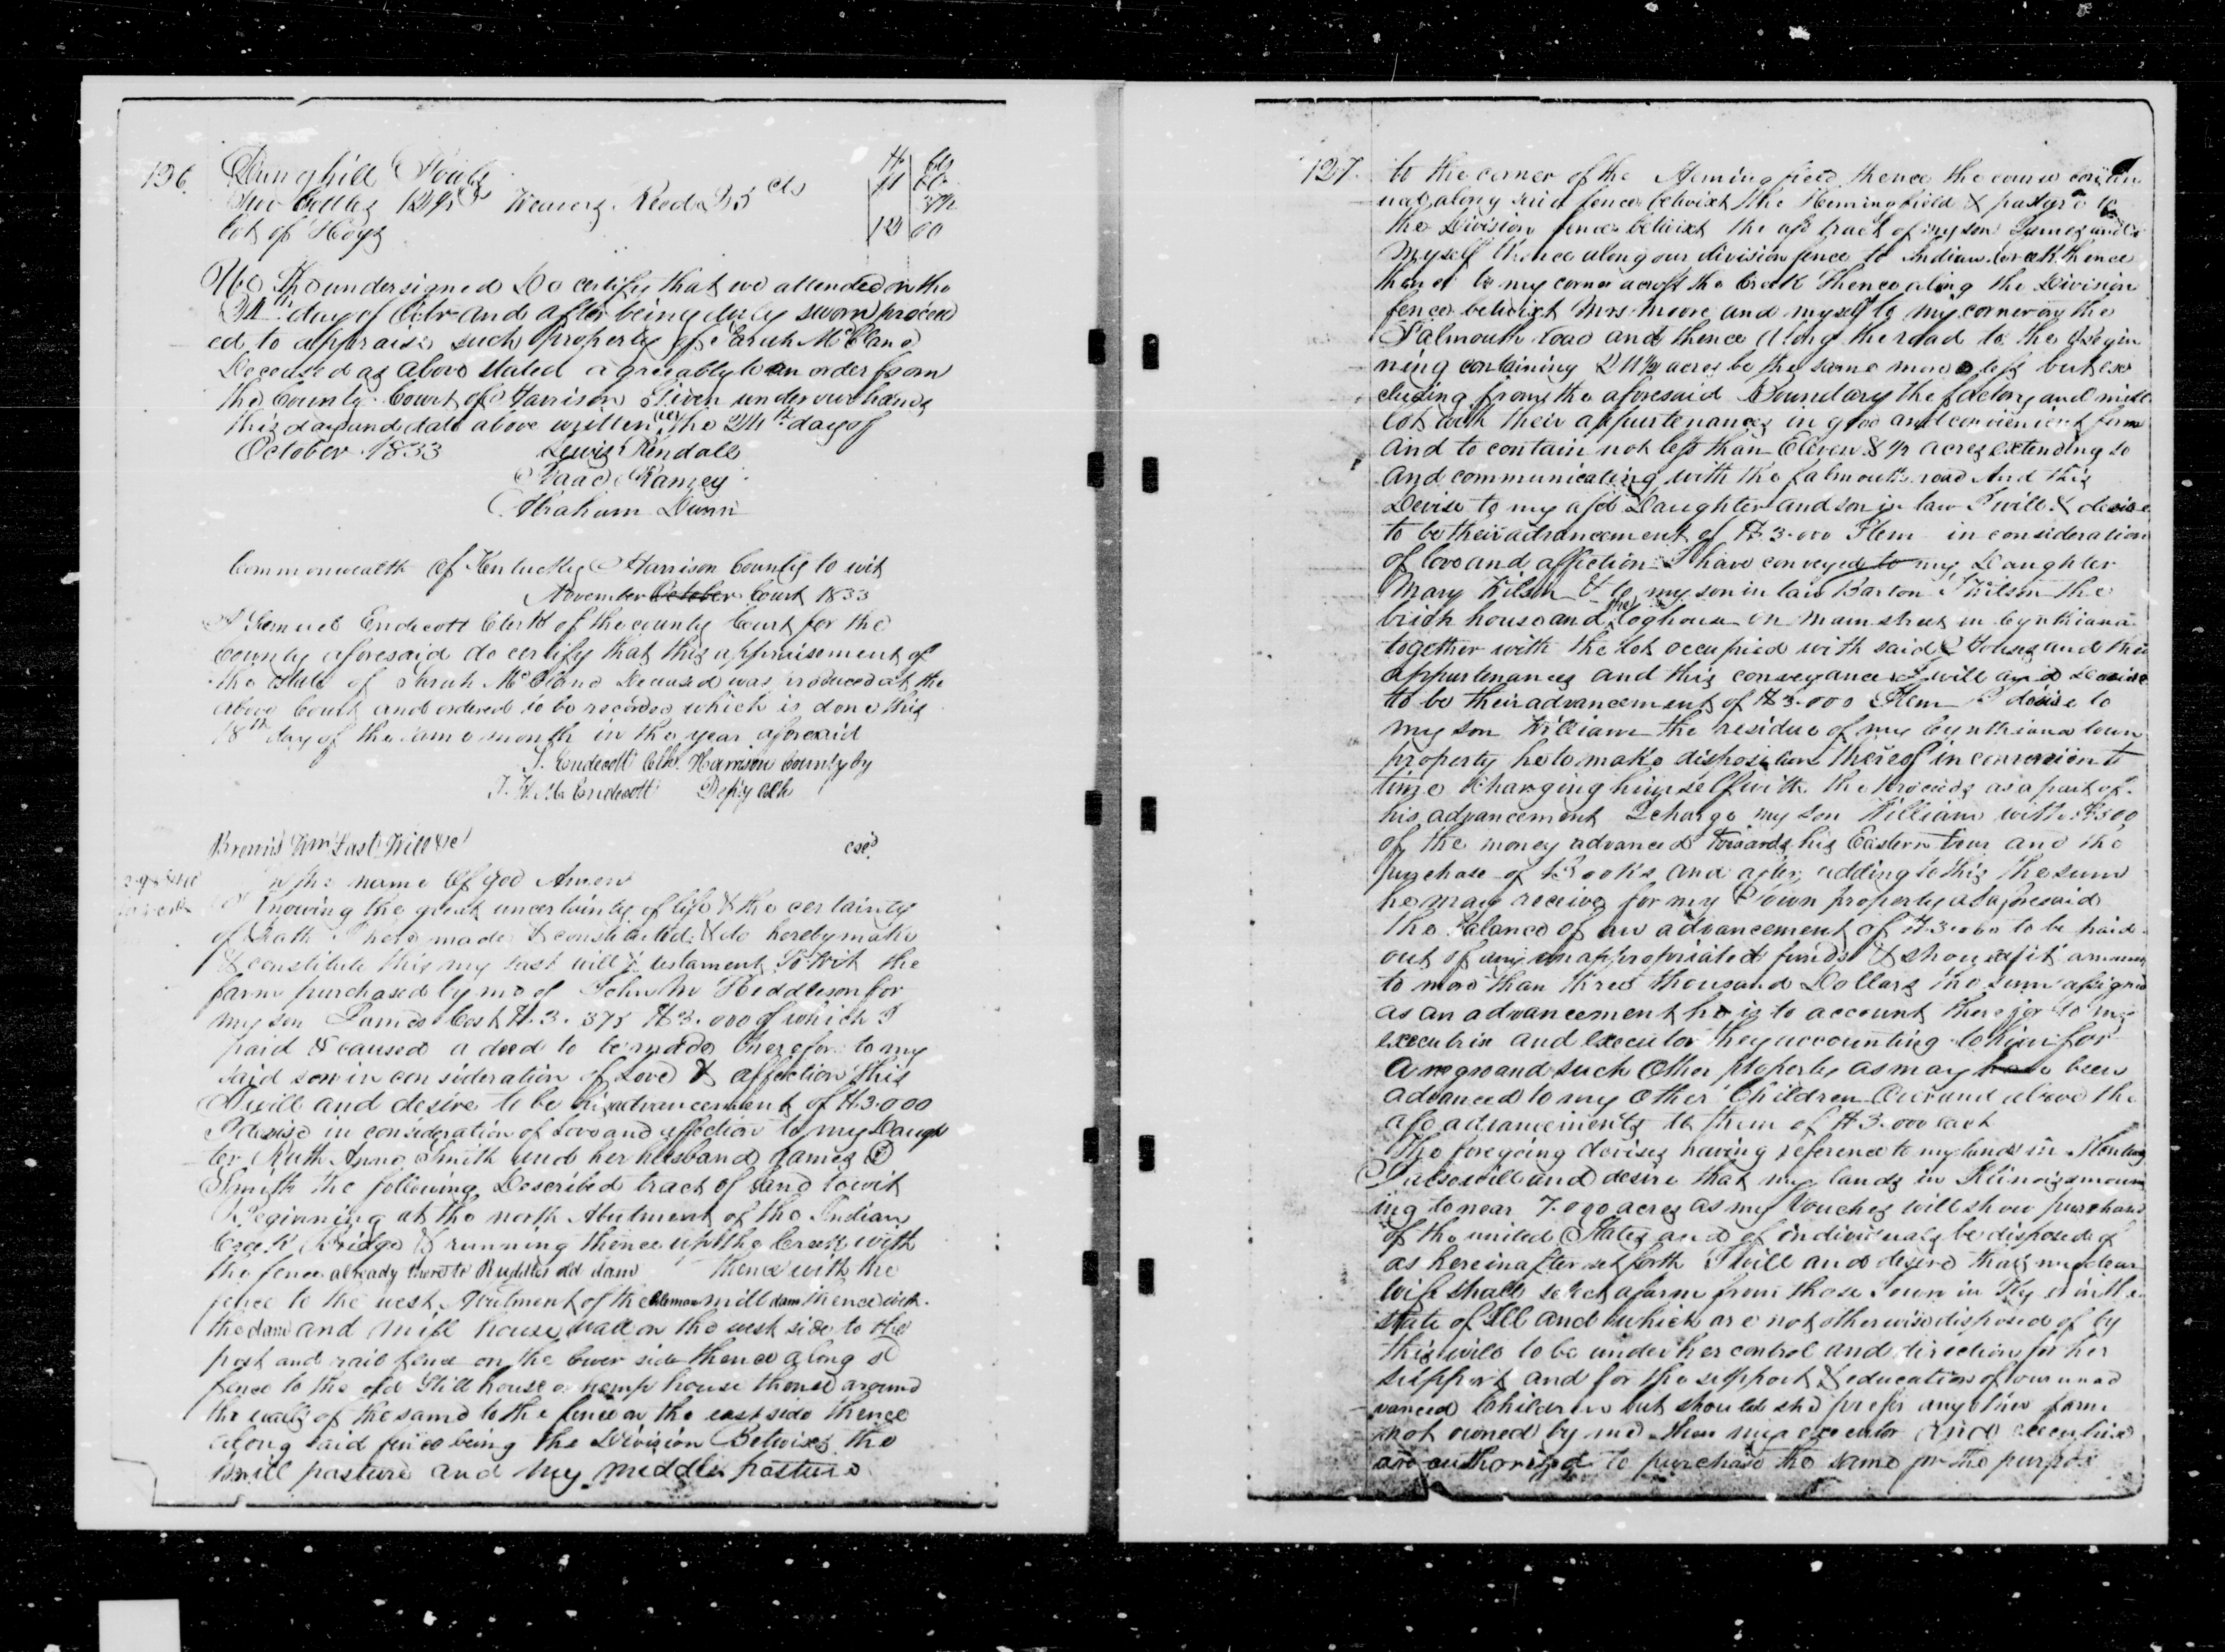 126
Dunghill Fowls
Two bottles 12½ cts Weavers Reed 25 cts 37½
lot of Hogs 12 00
We the undersigned Do certify that we attended on the
24th day of Octbr and after being duly sworn proceed
ed to appraise such property of Sarah McCland
Deceased as above stated agreeably to an order from
the County Court of Harrison Given under our hands
this day and date above written the 24th day of
October 1833 Lewis Kendall
Isaac Ramsey
Abraham Dunn
Commonwealth of Kentucky Harrison County to wit
November October Court 1833
I Samuel Endecott Clerk of the county Court for the
County aforesaid do certify that this appraisement of
the estate of Sarah McCland Deceased was produced at the
above Court and ordered to be recorded which is done this
18th day of the same month in the year aforesaid
S. Endecott Clk. Harrison County by
Endecott Depty Clk
Brown's Wm Last Will &c
In the name of God Amen
Knowing the great uncertainty of life & the certainty
of Death I have made & constituted & do hereby make
& constitute this my last will & testament To Wit the
farm purchased by me of John W Hiddleson for
my son James Cost $3.375 $3.000 of which I
paid & caused a deed to be made therefor to my
said son in consideration of Love & affection this
I will and desire to be his advancement of $3.000
I devise in consideration of Love and affection to my Daugh
ter Ruth Anne Smith and her husband James
Smith the following Described tract of land towit
Beginning at the north Abutment of the Indian
Creek Bridge & running thence up the Creek with
the fence already there to Ruddles old dam thence with the
fence to the west Abutment of the mill dam thence with
the dam and mill house wall on the west side to the
post and rail fence on the lower side thence along sd
fence to the old Still house or hemp house thence around
the walls of the same to the fence on the east side thence
along said fence being the Division Betwixt the
mill pasture and my middle pasture
127
to the corner of the Heming field thence the course contin
ued along said fence betwixt the Hemingfield & pasture to
the Division fence betwixt the afd tract of my son James and
myself thence along our division fence to Indian creek thence
thence to my corner across the Creek thence along the Division
fence betwixt Mrs Moore and myself to my corner on the
Falmouth road and thence along the road to the Begin
ning containing acres be the same more or less but ex
cluding from the aforesaid Boundary the factory and mill
lot with their appurtenances in good and convenient form
and to contain not less than Eleven & ½ acres extending to
and communicating with the falmouth road And this
Devise to my afd Daughter and son in law I will & desire
to be their advancement of $3.000 Item in consideration
of love and affection I have conveyed to my Daughter
Mary Wilson & to my son in law Barton Wilson the
brick house and the loghouse on main street in Cynthiana
together with the lot occupied with said Houses and their
appurtenances and this conveyance I will and desire
to be their advancement of $3.000 Item I devise to
my son William the residue of my Cynthiana town
property he to make disposition thereof in convenient
time charging himself with the proceeds as a part of
his advancement I charge my son William with $500
of the money advanced towards his Eastern tour and the
purchase of Books and after adding to this the sum
he may receive for my Town property as aforesaid
the Balance of an advancement of $3.000 to be paid
out of any unappropriated funds & should it amount
to more than three thousand Dollars the sum assigned
as an advancement he is to account therefor to my
executrix and executor they accounting to him for
a negro and such other property as may have been
advanced to my other Children over and above the
afd advancements to them of $3.000 each
The foregoing devises having reference to my lands in Kentucky
I also will and desire that my lands in Illinois amount
ing to near 7.000 acres as my Vouchers will show purchased
of the united States and of individuals be disposed of
as hereinafter set forth I will and desire that my dear
wife shall select a farm from those I own in Ky or in the
state of Ill and which are not otherwise disposed of by
this will to be under her control and direction for her
support and for the support & education of our unad
vanced Children but should she prefer any other farm
not owned by me then my executor and executrix
are authorized to purchase the same for the purpose